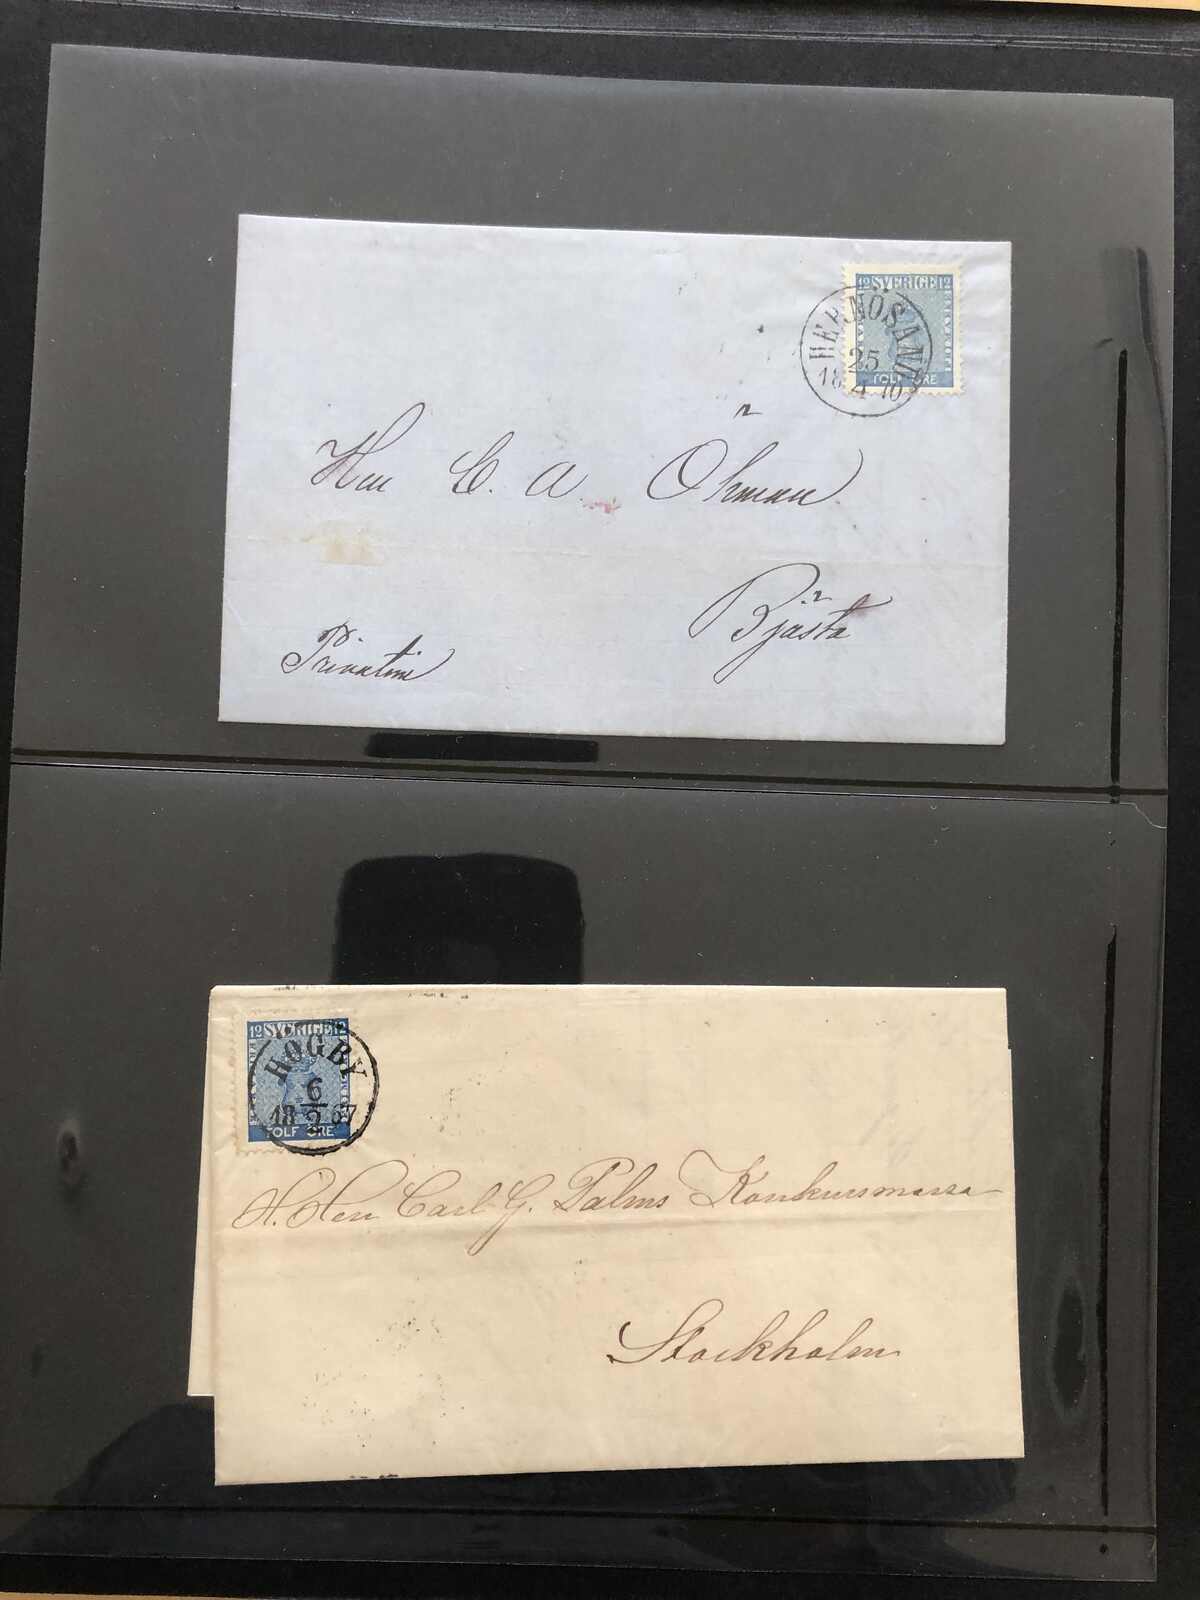 12 SVERIGE 12
HERNÖSAND
25
18 4 70
TOLF ÖRE
Herr C. A. Öhman
Bjästa
Privatim
12 SVERIGE 12
HÖGBY
6
18 2 67
TOLF ÖRE
H. Herr Carl G. Palms Konkursmassa
Stockholm